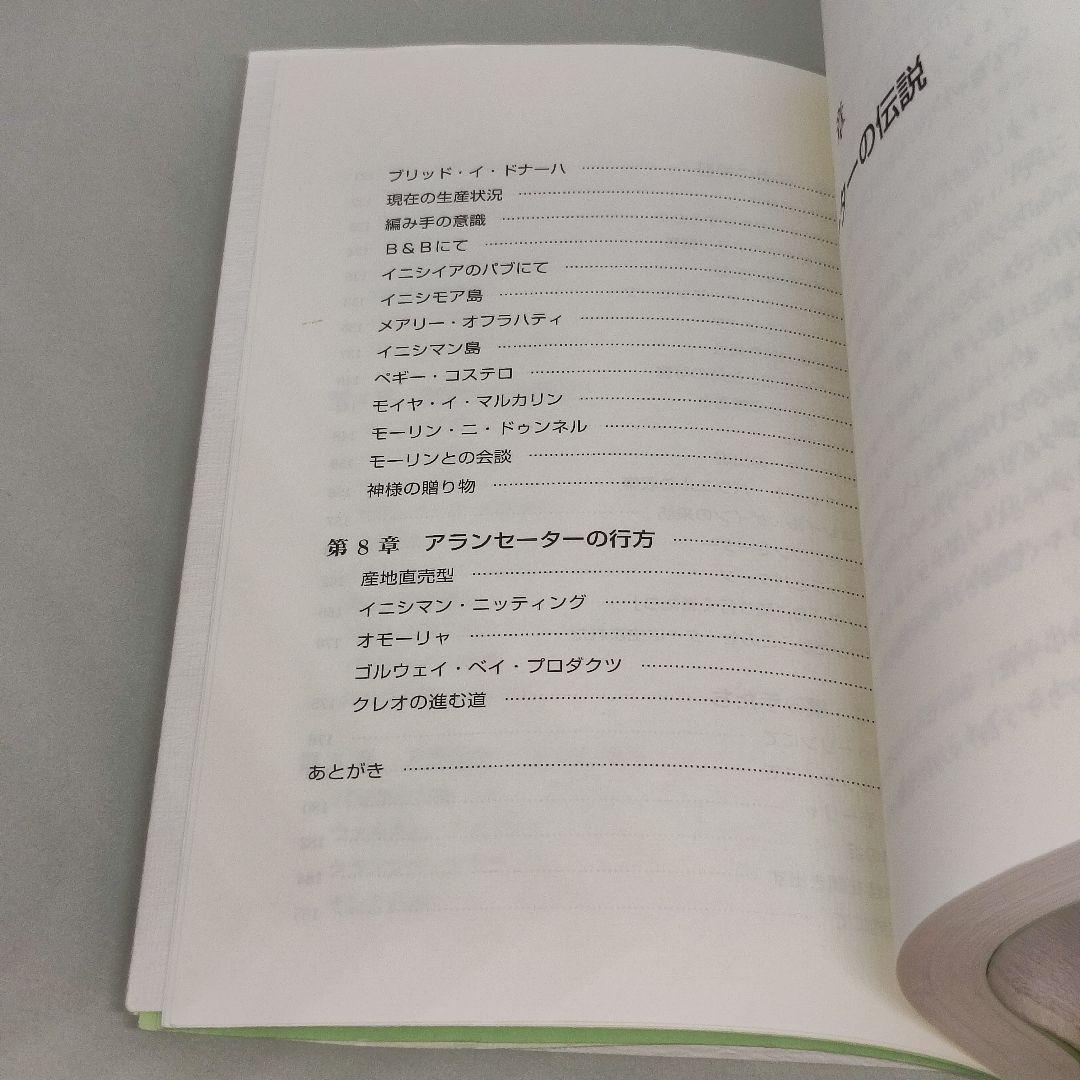 ブリッド・イ・ドナーハ
現在の生産状況
編み手の意識
B&Bにて
イニシイアのパブにて
イニシモア島
メアリー・オフラハティ
イニシマン島
ペギー・コステロ
モイヤ・イ・マルカリン
モーリン・ニ・ドゥンネル
モーリンとの会談
神様の贈り物
第8章 アランセーターの行方
産地直売型
イニシマン・ニッティング
オモーリャ
ゴルウェイ・ベイ・プロダクツ
クレオの進む道
あとがき
ーの伝説